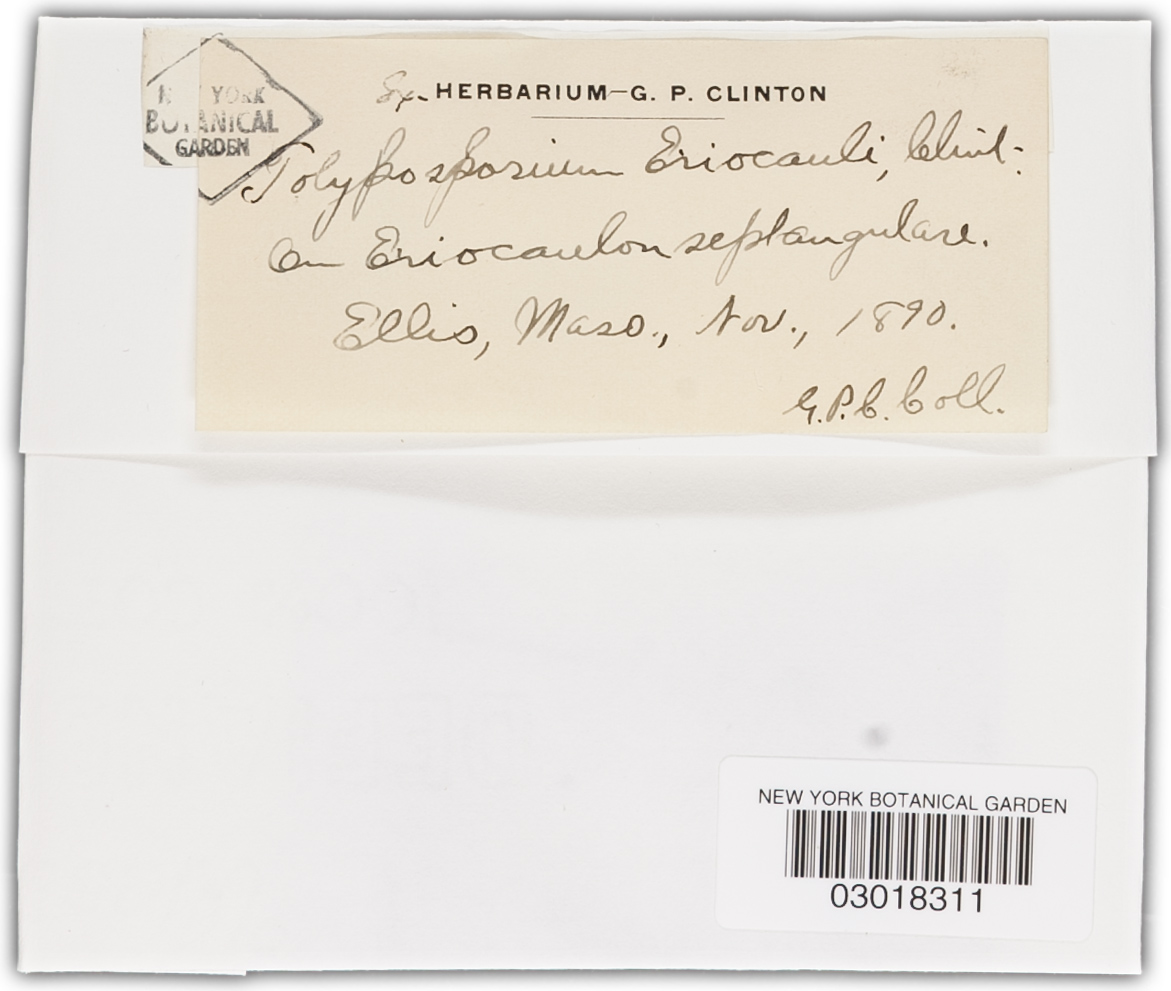 NEW YORK
BOTANICAL
GARDEN
Ex. HERBARIUM—G. P. CLINTON
Tolyposporium Eriocauli, Clint.
On Eriocaulon septangulare.
Ellis, Mass., Nov., 1890.
G.P.C. Coll.
NEW YORK BOTANICAL GARDEN
03018311